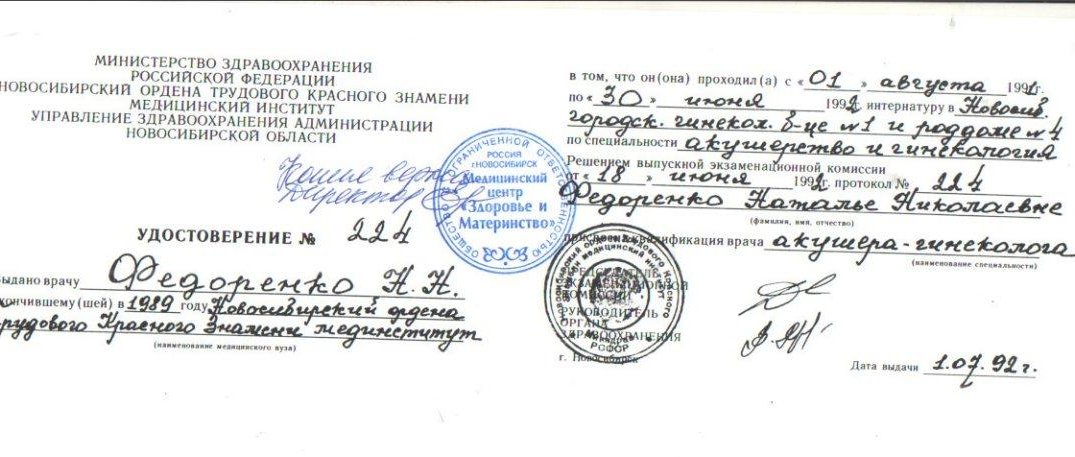 МИНИСТЕРСТВО ЗДРАВООХРАНЕНИЯ
РОССИЙСКОЙ ФЕДЕРАЦИИ
НОВОСИБИРСКИЙ ОРДЕНА ТРУДОВОГО КРАСНОГО ЗНАМЕНИ
МЕДИЦИНСКИЙ ИНСТИТУТ
УПРАВЛЕНИЕ ЗДРАВООХРАНЕНИЯ АДМИНИСТРАЦИИ
НОВОСИБИРСКОЙ ОБЛАСТИ
Копие верна
Директор
ОБЩЕСТВО С ОГРАНИЧЕННОЙ ОТВЕТСТВЕННОСТЬЮ
РОССИЯ
г.НОВОСИБИРСК
Медицинский
центр
«Здоровье и
Материнство»
УДОСТОВЕРЕНИЕ № 224
Выдано врачу Федоренко Н.Н.
окончившему (шей) в 1989 году Новосибирский ордена
Трудового Красного Знамени мединститут
(наименование медицинского вуза)
в том, что он (она) проходил (а) с «01» августа 1991г.
по «30» июня 1992г. интернатуру в Новосиб.
городск. гинекол. б-це №1 и роддоме №4
по специальности акушерство и гинекология
Решением выпускной экзаменационной комиссии
от «18» июня 1992г. протокол № 224
Федоренко Наталье Николаевне
(фамилия, имя, отчество)
присвоена квалификация врача акушера-гинеколога
(наименование специальности)
ПРЕДСЕДАТЕЛЬ
ЭКЗАМЕНАЦИОННОЙ
КОМИССИИ
РУКОВОДИТЕЛЬ
ОРГАНА
ЗДРАВООХРАНЕНИЯ
г. Новосибирск
Дата выдачи 1.07.92 г.